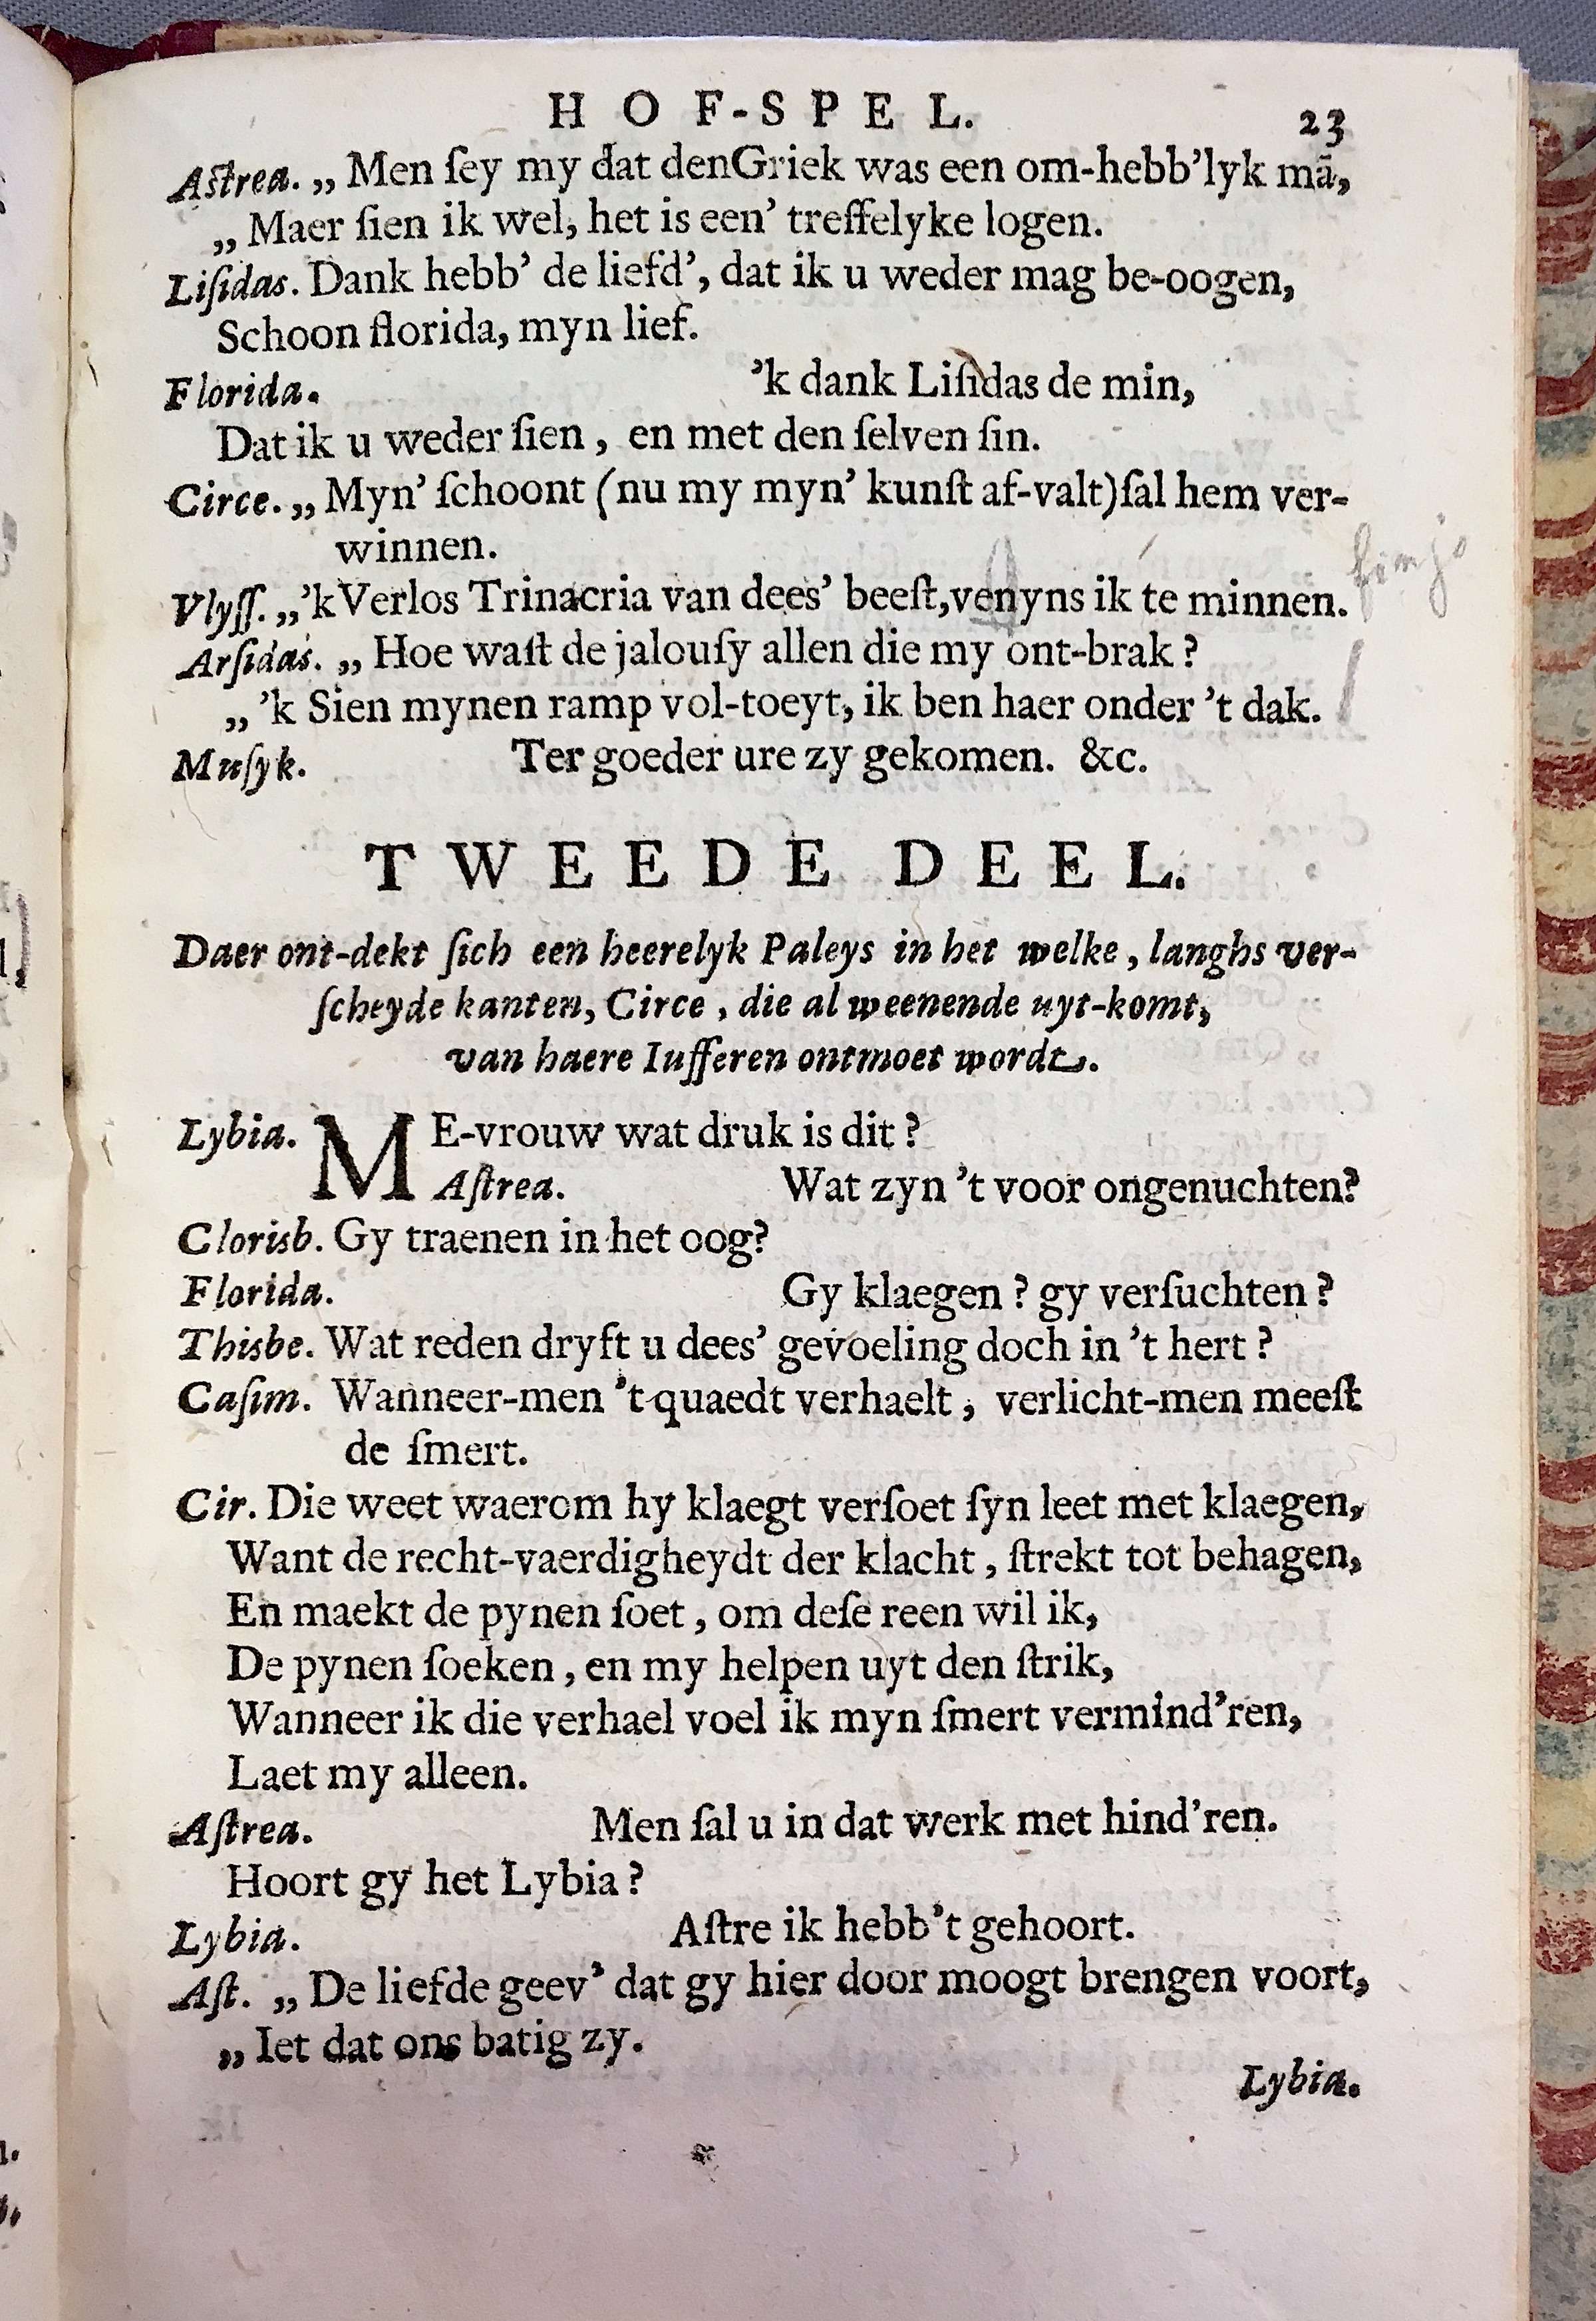 HOF-SPEL. 23
Aſtrea. „ Men ſey my dat denGriek was een om-hebb’lyk mā,
„ Maer ſien ik wel, het is een’ treffelyke logen.
Liſidas. Dank hebb’ de liefd’, dat ik u weder mag be-oogen,
Schoon florida, myn lief.
Florida. ’k dank Liſidas de min,
Dat ik u weder ſien, en met den ſelven ſin.
Circe. „ Myn’ ſchoont (nu my myn’ kunſt af-valt)ſal hem ver-
winnen.
Vlyſſ. „’k Verlos Trinacria van dees’ beeſt,venyns ik te minnen.
Arſidas. „ Hoe waſt de jalouſy allen die my ont-brak?
„ ’k Sien mynen ramp vol-toeyt, ik ben haer onder ’t dak.
Muſyk. Ter goeder ure zy gekomen. &c.
TWEEDE DEEL.
Daer ont-dekt ſich een heerelyk Paleys in het welke, langhs ver-
ſcheyde kanten, Circe, die al weenende uyt-komt,
van haere Iufferen ontmoet wordt.
Lybia. ME-vrouw wat druk is dit?
Aſtrea. Wat zyn ’t voor ongenuchten?
Clorisb. Gy traenen in het oog?
Florida. Gy klaegen? gy verſuchten?
Thisbe. Wat reden dryft u dees’ gevoeling doch in ’t hert?
Caſim. Wanneer-men ’t quaedt verhaelt, verlicht-men meeſt
de ſmert.
Cir. Die weet waerom hy klaegt verſoet ſyn leet met klaegen,
Want de recht-vaerdigheydt der klacht, ſtrekt tot behagen,
En maekt de pynen ſoet, om deſe reen wil ik,
De pynen ſoeken, en my helpen uyt den ſtrik,
Wanneer ik die verhael voel ik myn ſmert vermind’ren,
Laet my alleen.
Aſtrea. Men ſal u in dat werk met hind’ren.
Hoort gy het Lybia?
Lybia. Aſtre ik hebb’t gehoort.
Aſt. „ De liefde geev’ dat gy hier door moogt brengen voort,
„ Iet dat ons batig zy.
Lybia.